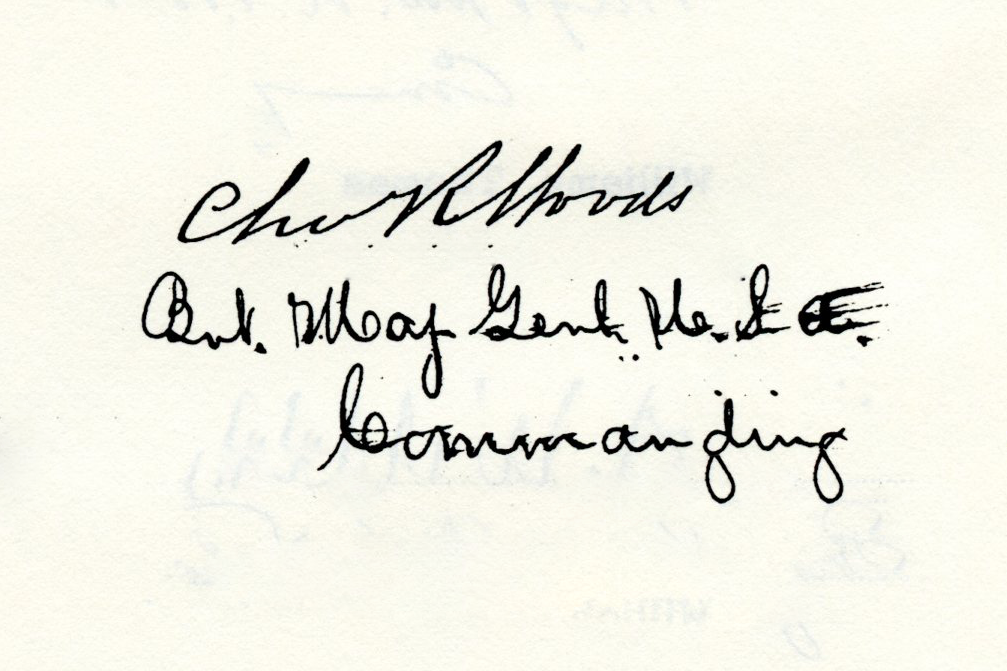 Chas R Woods
Bvt. Maj Genl. U. S. A.
Commanding